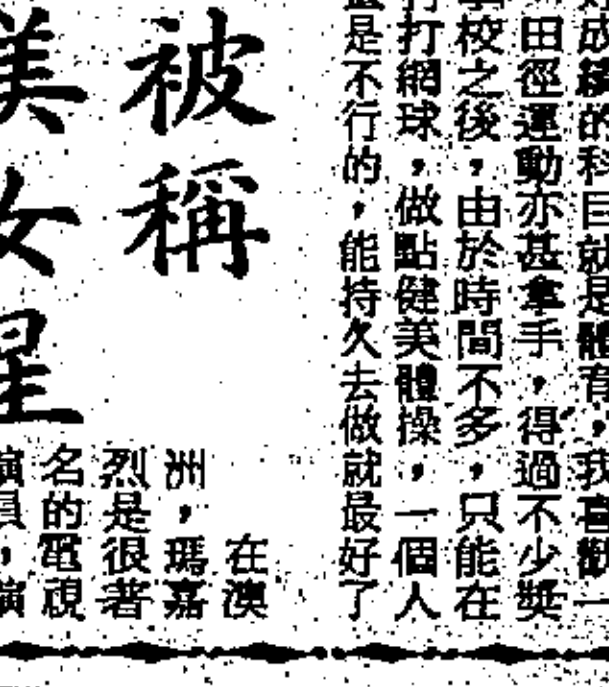 成績的科目就是體育，我喜歡一
田徑運動亦甚拿手，得過不少獎
校之後，由於時間不多，只能在
打網球，做點健美體操，一個人
是不行的，能持久去做就最好了
被稱
美女星
在澳
洲，瑪嘉
烈是很著
名的電視
演員，演